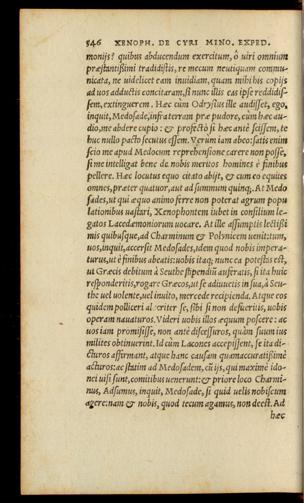 546 XENOPH. DE CYRI MINO. EXPED.
monijs? quibus abducendum exercitum, ô uiri omnium
præstantißimi tradidistis, re mecum neutiquam commu-
nicata, ne uidelicet eam inuidiam, quam mihi his copijs
ad uos adductis concitaram, si nunc illis eas ipse reddidis-
sem, extinguerem. Hæc cùm Odrysius ille audisset, ego,
inquit, Medosade, infra terram præ pudore, cùm hæc au-
dio, me abdere cupio: & profectò si hæc antè scissem, te
huc nullo pacto secutus essem. Verùm iam abeo: satis enim
scio me apud Medocum reprehensione carere non posse,
si me intelligat bene de nobis meritos homines è finibus
pellere. Hæc locutus equo citato abijt, & cum eo equites
omnes, præter quatuor, aut ad summum quinq;. At Medo
sades, ut qui æquo animo ferre non poterat agrum popu
lationibus uastari, Xenophontem iubet in consilium le-
gatos Lacedæmoniorum uocare. At ille assumptis lectißi
mis quibusque, ad Charminum & Polynicem uenit: tum,
uos, inquit, accersit Medosades, idem quod nobis impera-
turus, ut è finibus abeatis: uobis itaq; nunc ea potestas est,
ut Græcis debitum à Seuthe stipendiũ auferatis, si ita huic
responderitis, rogare Græcos, ut se adiuuetis in sua, à Seu-
the uel uolente, uel inuito, mercede recipienda. Atque eos
quidem polliceri alacriter se, sibi si non defueritis, uobis
operam nauaturos. Videri uobis illos æquum poscere: ac
uos iam promisisse, non antè discessuros, quàm suum ius
milites obtinuerint. Id cùm Lacones accepissent, se ita di-
cturos affirmant, atque hanc causam quam accuratißimè
acturos: ac statim ad Medosadem, cũ ijs, qui maximè ido-
nei uisi sunt, comitibus uenerunt: & priore loco Charmi-
nus, Adsumus, inquit, Medosade, si quid uelis nobiscum
agere: nam & nobis, quod tecum agamus, non deest. Ad
hæc